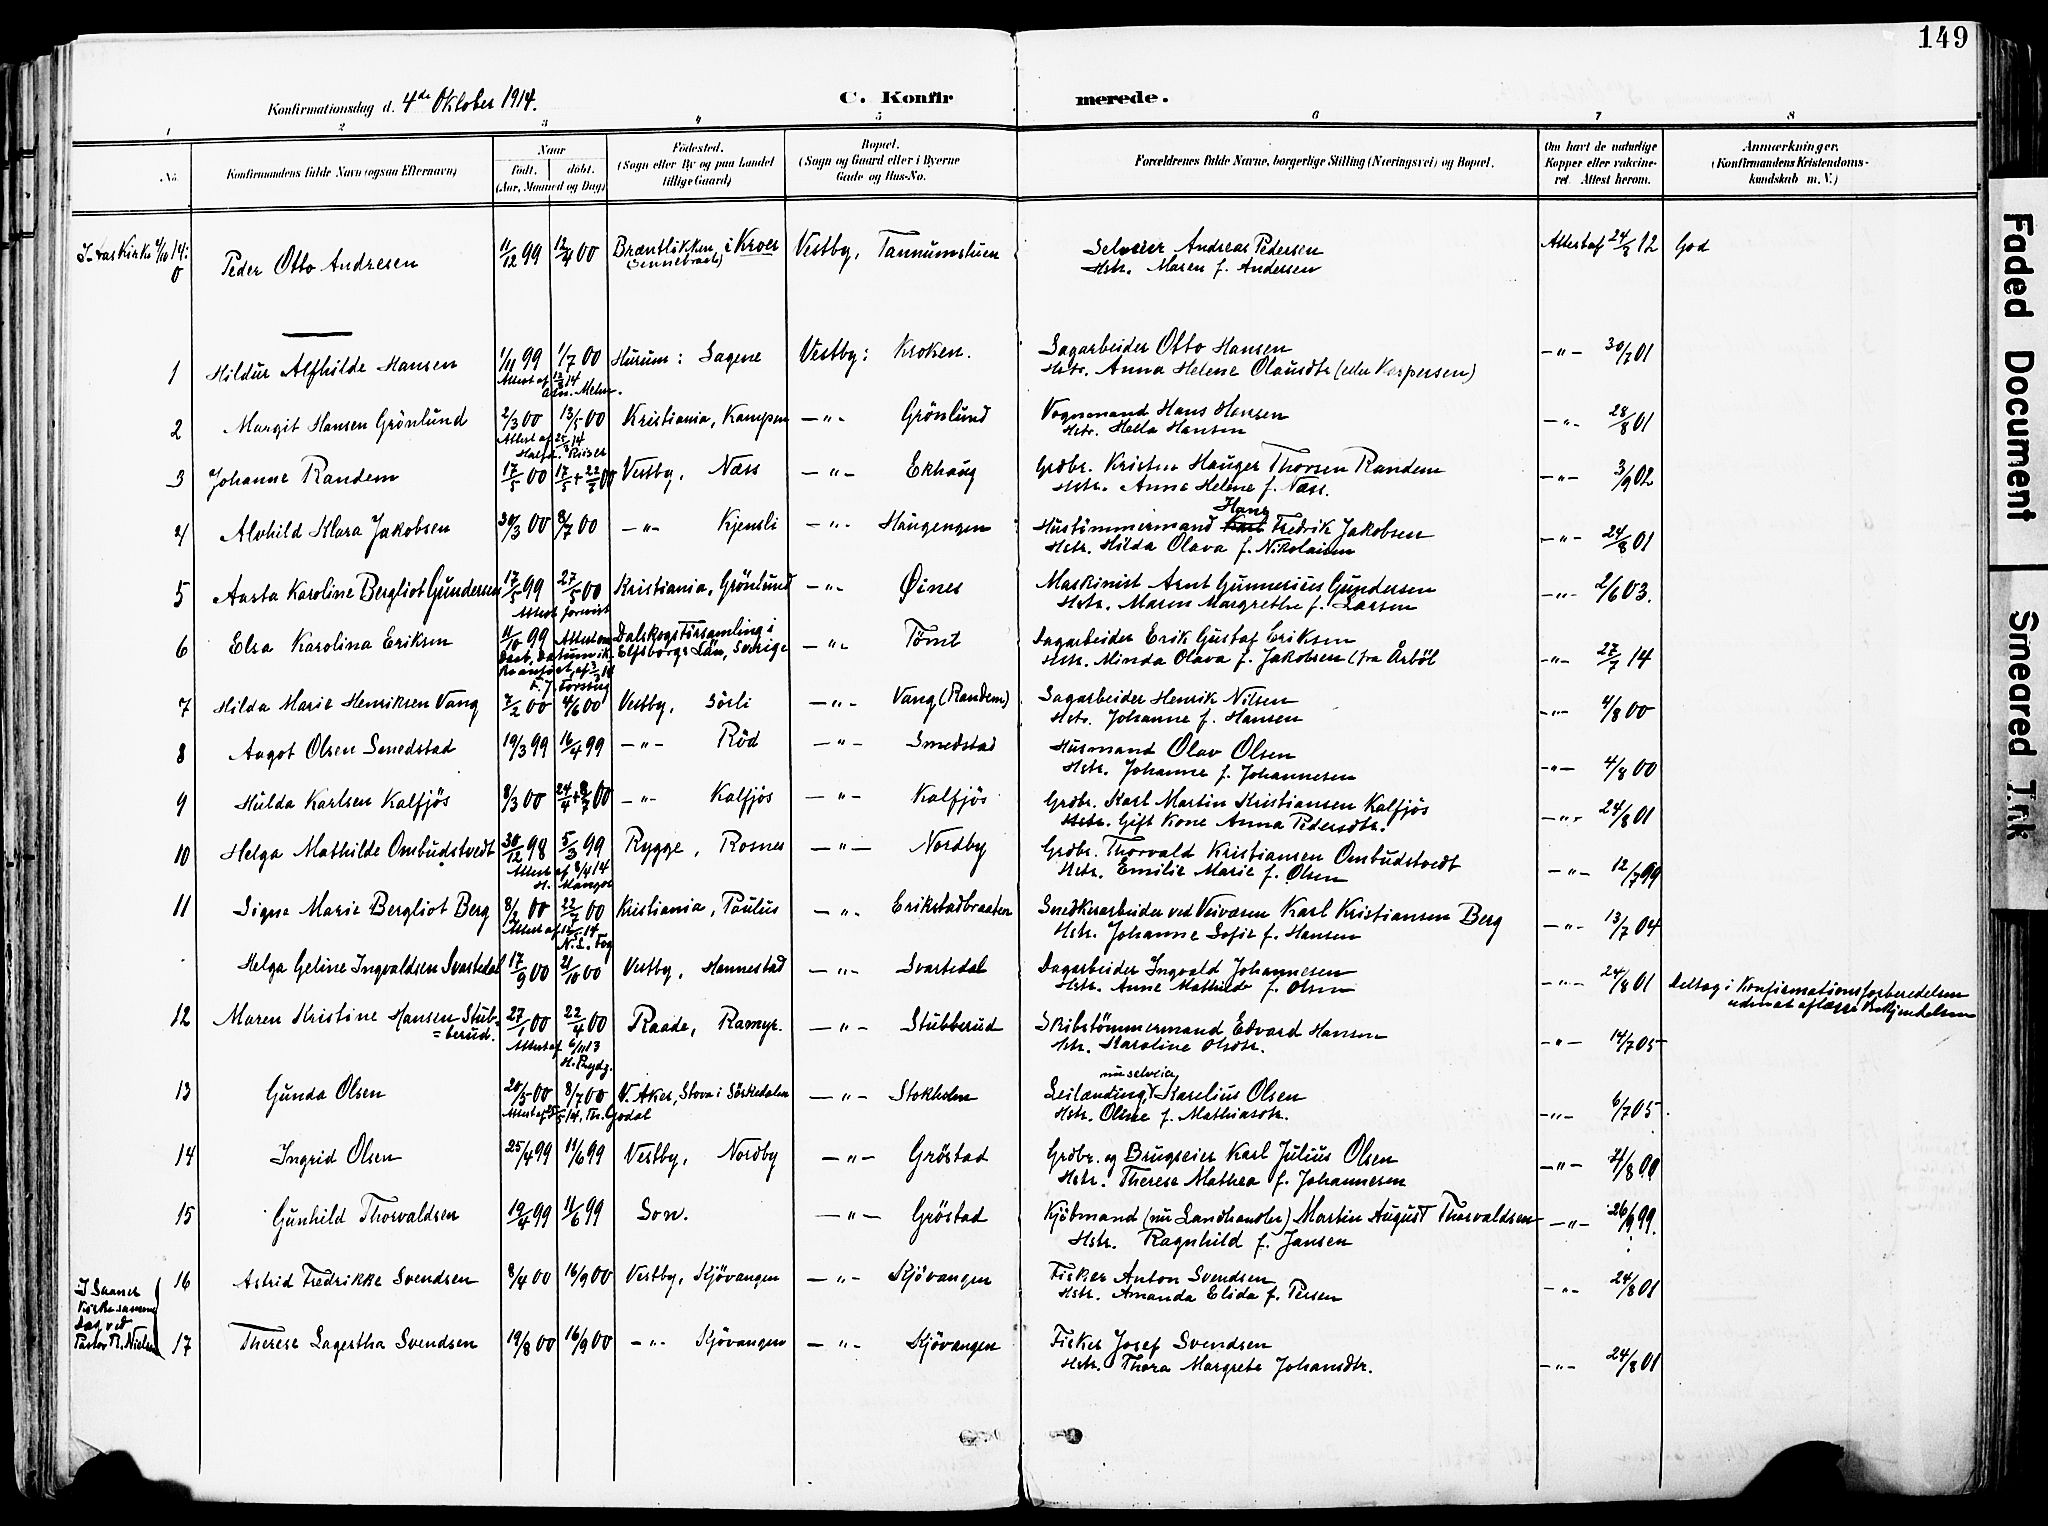 149
Konfirmationsdag d. 4de Oktober 1914.
C. Konfirmerede.
1 2 3 4 5 6 7 8
No.
Konfirmandens fulde Navn (ogsaa Efternavn)
Naar
født. døbt.
(Aar, Maaned og Dag)
Fødested.
(Sogn eller By og paa Landet
tillige Gaard)
Bopæl.
(Sogn og Gaard eller i Byerne
Gade og Hus-No.
Forældrenes fulde Navne, borgerlige Stilling (Næringsvei) og Bopæl.
Om havt de naturlige
Kopper eller vakcine-
ret. Attest herom.
Anmærkninger.
(Konfirmandens Kristendoms-
kundskab m. V.)
0 Peder Otto Andresen 11/12 99 12/4 00 i Kroer Vestby, Selveier Andreas Pedersen Attest af 24/8 12 God
Hstr. Maren f. Andersen
1 Hildur Alfhilde Hansen 1/11 99 1/7 00 Hurum: Sagene Vestby: Kroken. Sagarbeider Otto Hansen -"- 30/7 01
Hstr. Anna Helene Olausdtr
2 Margit Hansen Grönlund 2/3 00 13/5 00 Kristiania, Kampen -"- Grönlund Vognmand Hans Hansen -"- 28/8 01
Hstr. Hella Hansen
3 Johanne Randem 17/5 00 Vestby, Næss -"- Ekhaug Grdbr. Kristen Hauger Thorsen Randem -"- 3/9 02
Hstr. Anne Helene f. Næss.
4 Alvhild Klara Jakobsen 30/3 00 8/7 00 -"- Kjensli -"- Haugengen Hustömmermand Karl Hans Fredrik Jakobsen -"- 24/8 01
Hstr. Hilda Olava f. Nikolaisen
5 Aasta Karoline Bergliot Gundersen 17/5 99 27/5 00 Kristiania, Grönlund -"- Øines Maskinist Arnt Gunnerius Gundersen -"- 2/6 03.
Hstr. Maren Margrethe f. Larsen
6 Elsa Karolina Eriksen 11/10 99 Dalskogs Församling i -"- Tömt Dagarbeider Erik Gustaf Eriksen -"- 27/7 14
Elfsborgs Län, Sverige Hstr. Minda Olava f. Jakobsen (fra Årböl
7 Hilda Marie Henriksen Vang 7/2 00 4/6 00 Vestby, Sörli -"- Vang (Randem) Sagarbeider Henrik Nilsen -"- 4/8 00
Hstr. Johanne f. Hansen
8 Aagot Olsen Smedstad 19/3 99 16/4 99 -"- Röd -"- Smedstad Husmand Olav Olsen -"- 4/8 00
Hstr. Johanne f. Johannesen
9 Hulda Karlsen Kalfjös 8/3 00 -"- Kalfjös -"- Kalfjös Grdbr. Karl Martin Kristiansen Kalfjös -"- 24/8 01
Hstr. Gift Kone Anna Pedersdtr.
10 Helga Mathilde Ombudstvedt 30/12 98 5/3 99 Rygge, Rosnes -"- Nordby Grdbr. Thorvald Kristiansen Ombudstvedt -"- 12/7 99
Attest af 8/4 14 Hstr. Emilie Marie f. Olsen
11 Signe Marie Bergliot Berg 8/2 00 22/7 00 Kristiania, Paulus -"- Erikstadbraaten Snedkerarbeider ved Veivæsen Karl Kristiansen Berg -"- 13/7 04
Hstr. Johanne Sofie f. Hansen
Helga Geline Ingvaldsen Svartedal 17/9 00 21/10 00 Vestby, Hannestad -"- Svartedal Dagarbeider Ingvald Johannesen -"- 24/8 01 Deltog i Konfirmationsforberedelsen
Hstr. Anne Mathilde f. Olsen uden at aflægge Bekjendelsen
12 Maren Kristine Hansen Stub- 27/1 00 22/4 00 Raade, Ramyr. -"- Stubberud Skibstömmermand Edvard Hansen -"- 14/7 05
=berud. Attest af 6/11 13 Hstr. Karoline Olsdtr.
13 Gunda Olsen 20/5 00 8/7 00 V. Aker, Stova i Sörkedalen -"- Stokholm Leilænding, nu selveier Karelius Olsen -"- 6/7 05
Hstr. Oline f. Mathiasdtr.
14 Ingrid Olsen 25/4 99 11/6 99 Vestby, Nordby -"- Gröstad Grdbr. og Brugseier Karl Julius Olsen -"- 4/8 00
Hstr. Therese Mathea f. Johannesen
15 Gunhild Thorvaldsen 19/4 99 11/6 99 Son. -"- Gröstad Kjöbmand (nu Landhandler) Martin August Thorvaldsen -"- 26/9 99.
Hstr. Ragnhild f. Jansen
I Saaner
Kirke samme
dag ved
Pastor R. Nielsen
16 Astrid Fredrikke Svendsen 8/4 00 16/9 00 Vestby, Kjövangen -"- Kjövangen Fisker Anton Svendsen -"- 24/8 01
Hstr. Amanda Elida f. Persen
17 Therese Lagertha Svendsen 19/8 00 16/9 00 -"- Kjövangen -"- Kjövangen Fisker Josef Svendsen -"- 24/8 01
Hstr. Thora Margrete Johansdtr.
Faded Document
Smeared Ink